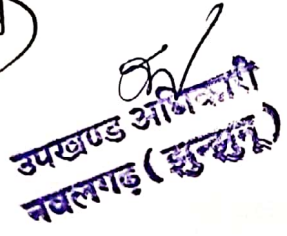 उपखण्ड अधिकारी
नवलगढ़ (झुन्झुनू)